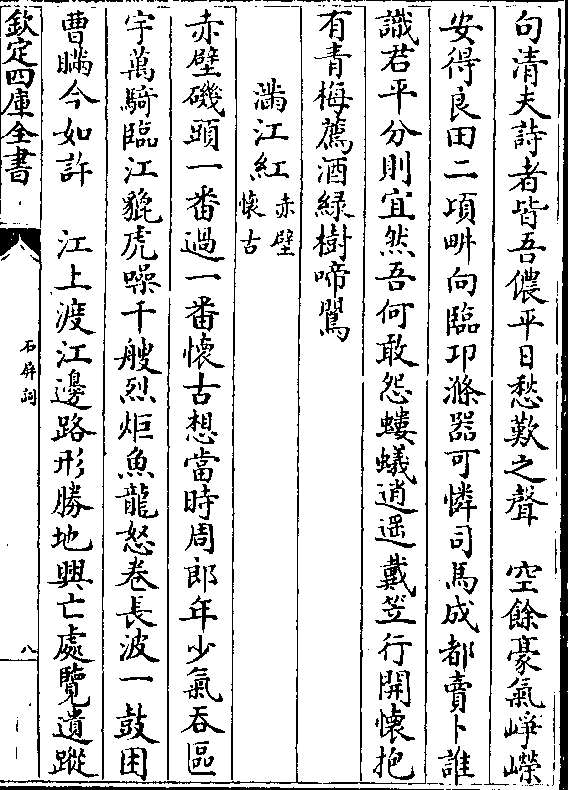 句清夫詩者皆吾儂平日愁歎之聲　空餘豪氣崢嶸
安得良田二項畊向臨邛滌器可憐司馬成都賣卜誰
識君平分則宜然吾何敢怨螻蟻逍遥戴笠行開懷抱
有青梅薦酒緑樹啼鶯
滿江紅赤壁懷古
赤壁磯頭一番過一番懷古想當時周郎年少氣吞區
宇萬騎臨江貔虎噪千艘烈炬魚龍怒卷長波一鼓困
曹瞞今如許　江上渡江邊路形勝地興亡處覽遺蹤
欽定四庫全書
石屏詞
八